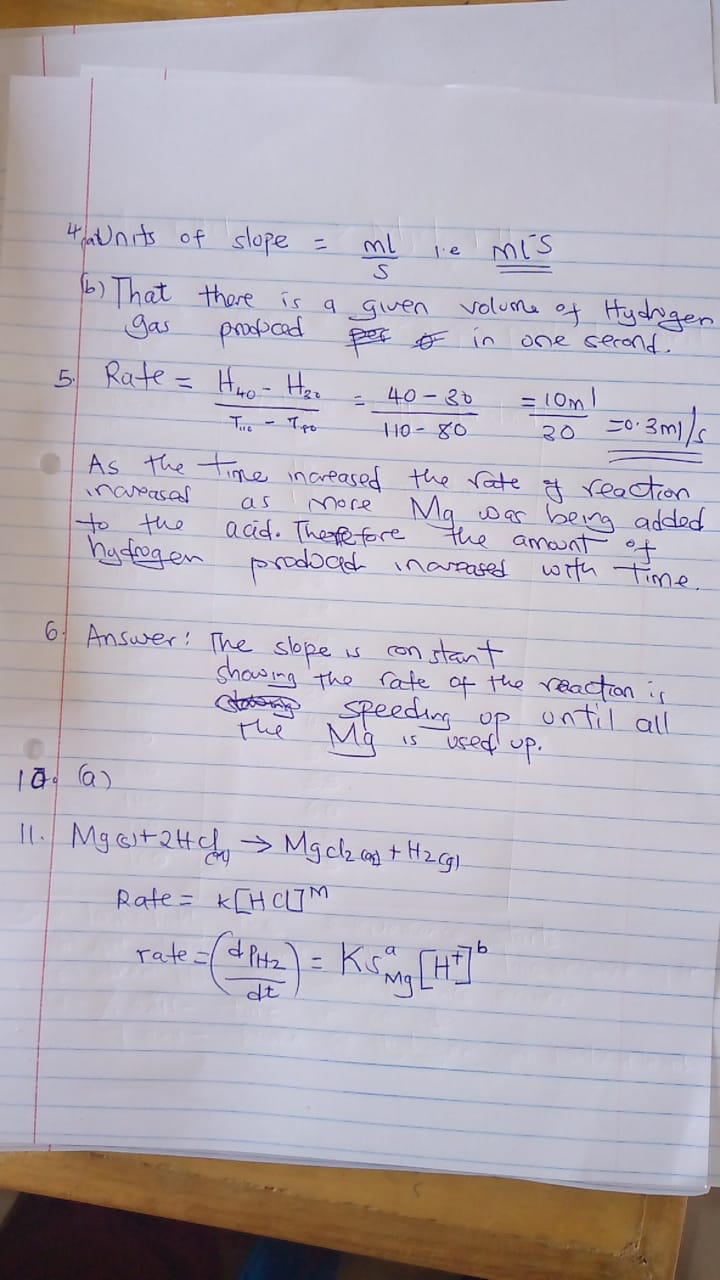 4(a) Units of slope = ml/s i.e ml⁻s
(b) That there is a given volume of Hydrogen
gas produced per in one second.
5. Rate = H₄₀ - H₃₀ / T₁₁₀ - T₈₀ = 40 - 30 / 110 - 80 = 10ml / 30 = 0.3ml/s
As the time increased the rate of reaction
increased as more Mg was being added
to the acid. Therefore the amount of
hydrogen produced increased with time.
6. Answer: The slope is constant
showing the rate of the reaction is
speeding up until all
the Mg is used up.
10. (a)
11. Mg(s) + 2HCl(aq) → MgCl2(aq) + H2(g)
Rate = k[HCl]ᴹ
rate = (dP_H2 / dt) = KSᵃ_Mg [H⁺]ᵇ